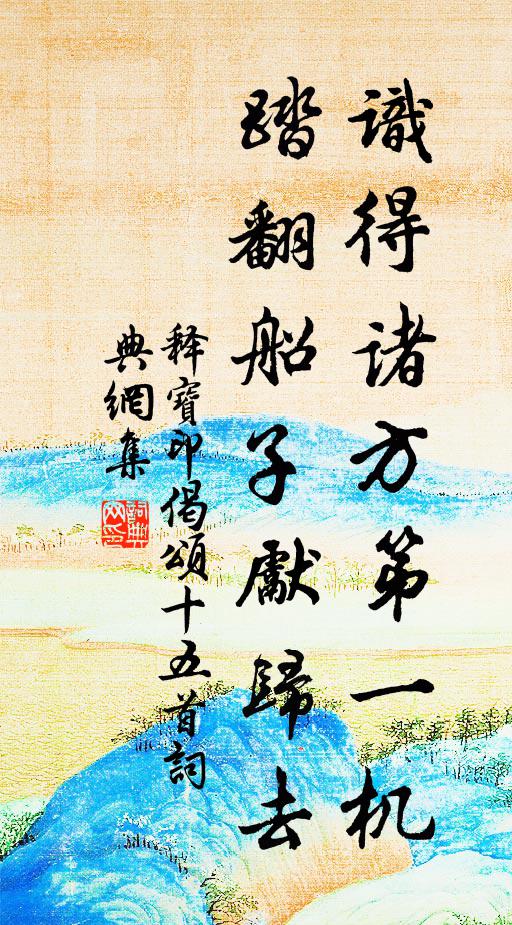 識得诸方第一机
踏翻船子獻歸去
释寶印偈頌十五首詞
典網集
詞典网印